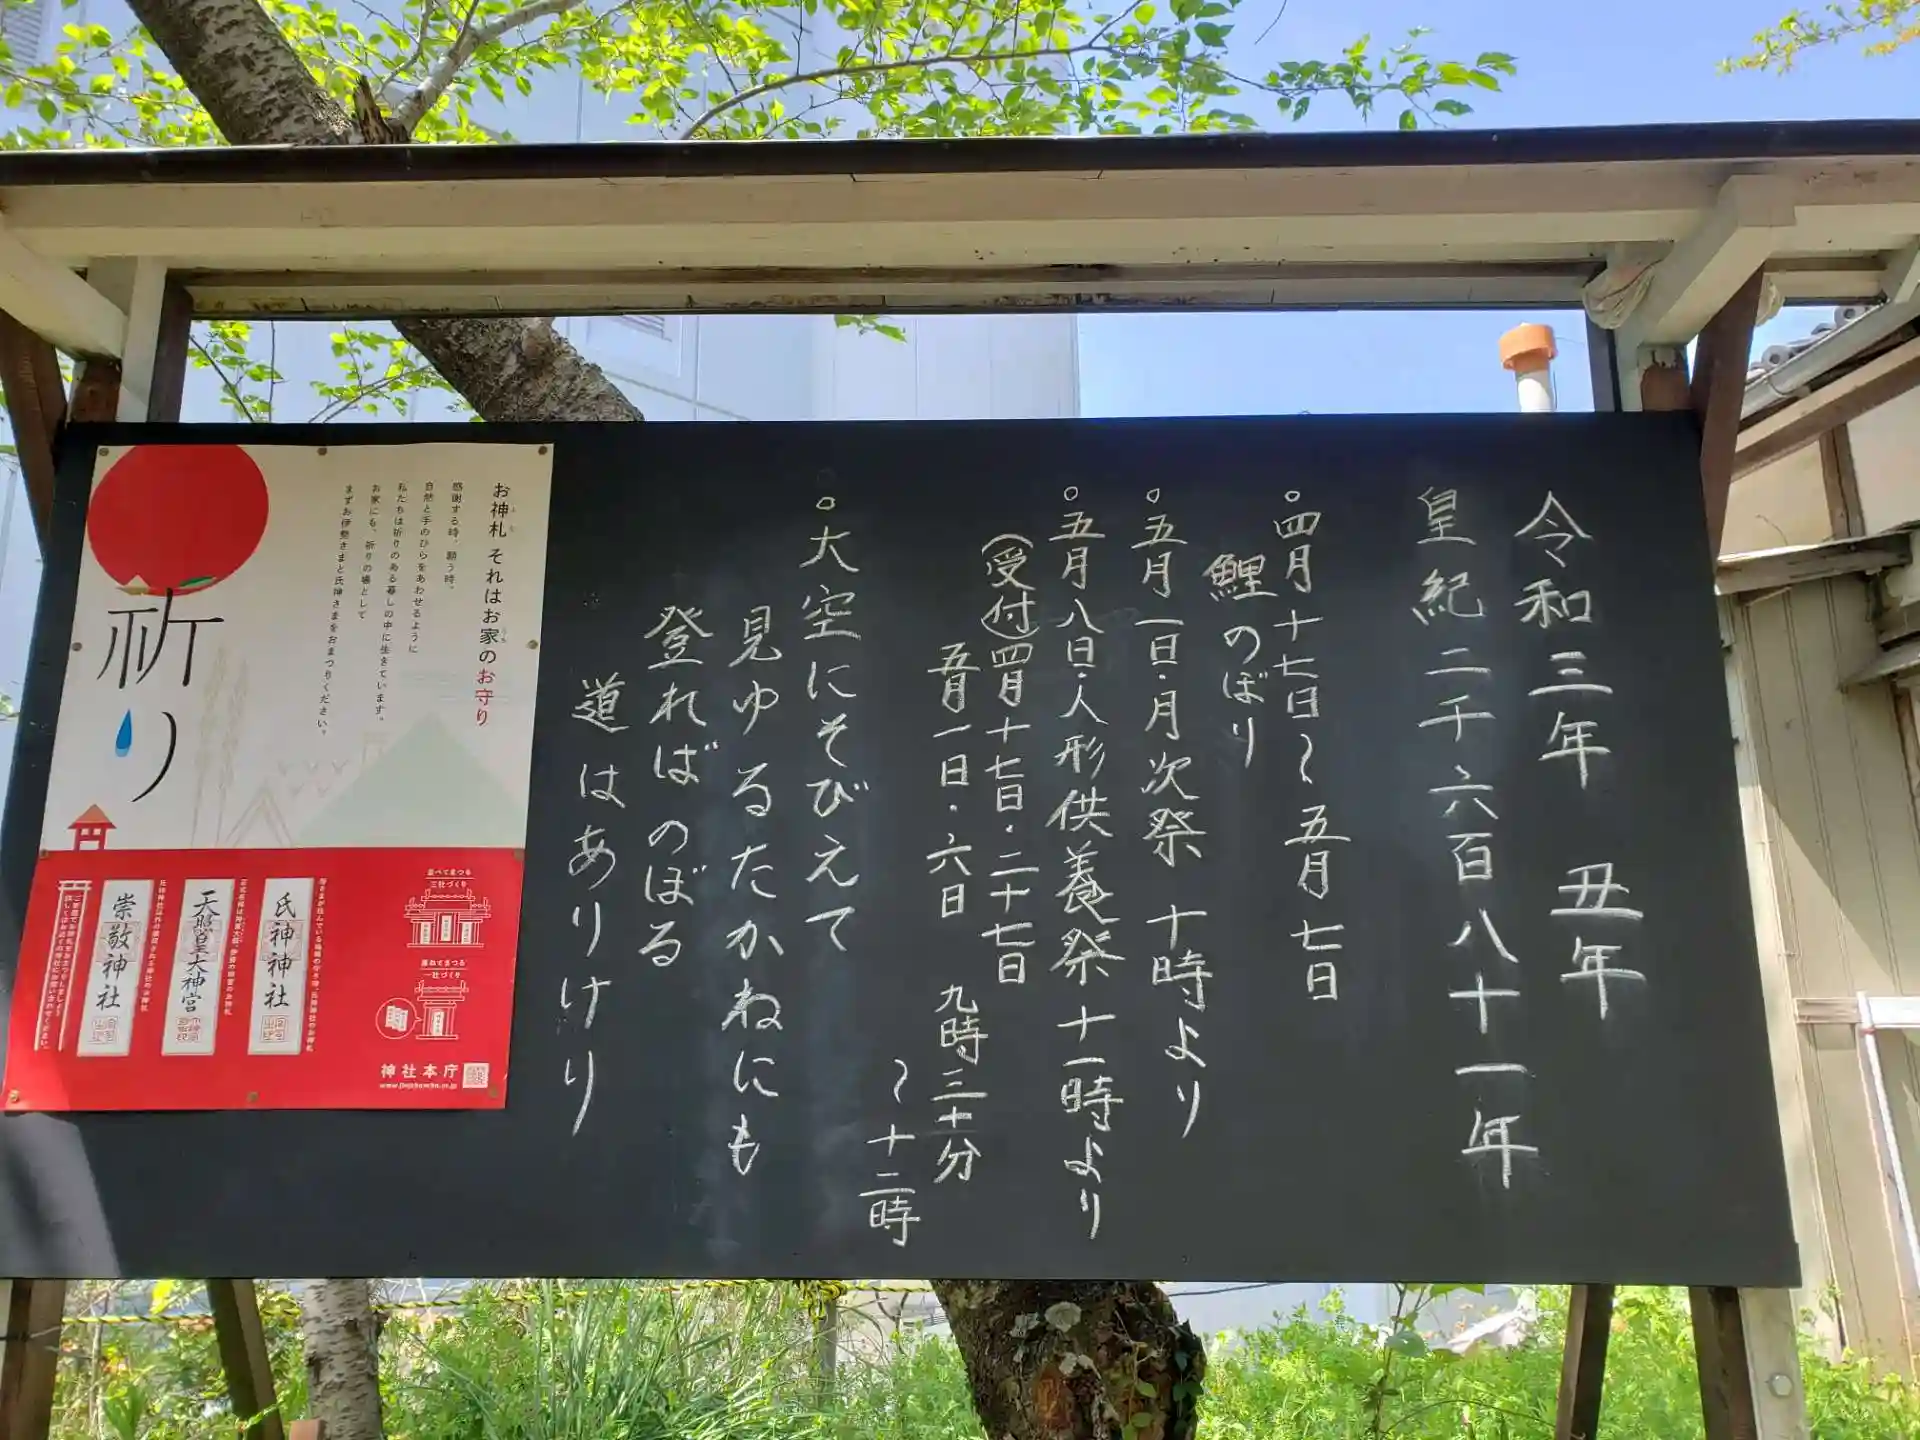 令和三年 丑年
皇紀二千六百八十一年
。四月十七日〜五月七日
鯉のぼり
。五月一日・月次祭 十時より
。五月八日・人形供養祭 十一時より
（受付）四月十七日・二十七日
五月一日・六日 九時三十分
〜十二時
。大空にそびえて
見ゆるたかねにも
登ればのぼる
道はありけり
お神札 それはお家のお守り
感謝する時、願う時。
自然と手のひらをあわせるように
私たちは祈りのある暮しの中に生きています。
お家にも、祈りの場として
まずお伊勢さまと氏神さまをおまつりください。
祈り
並べてまつる
三社づくり
重ねてまつる
一社づくり
氏神神社
天照皇大神宮
崇敬神社
神社本庁